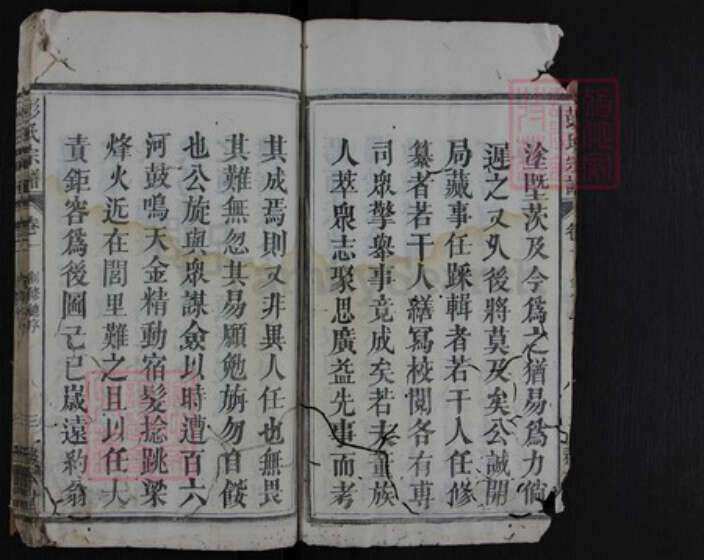 塗塈茨及今為之猶易為力倘
遲之又久後將莫及矣公誠開
局蕆事任蹂輯者若干人任修
纂者若干人繕寫校閱各有專
司眾擎舉事竟成矣若夫畫族
人萃眾志聚思廣益先事而考
其成焉則又非異人任也無畏
其難無忽其易願勉旃勿自餒
也公旋與眾謀僉以時遭百六
河鼓鳴天金精動宿髮捻跳梁
烽火近在閭里難之且以任大
責鉅容為後圖己巳嵗遠約翁
彭氏宗譜
卷一